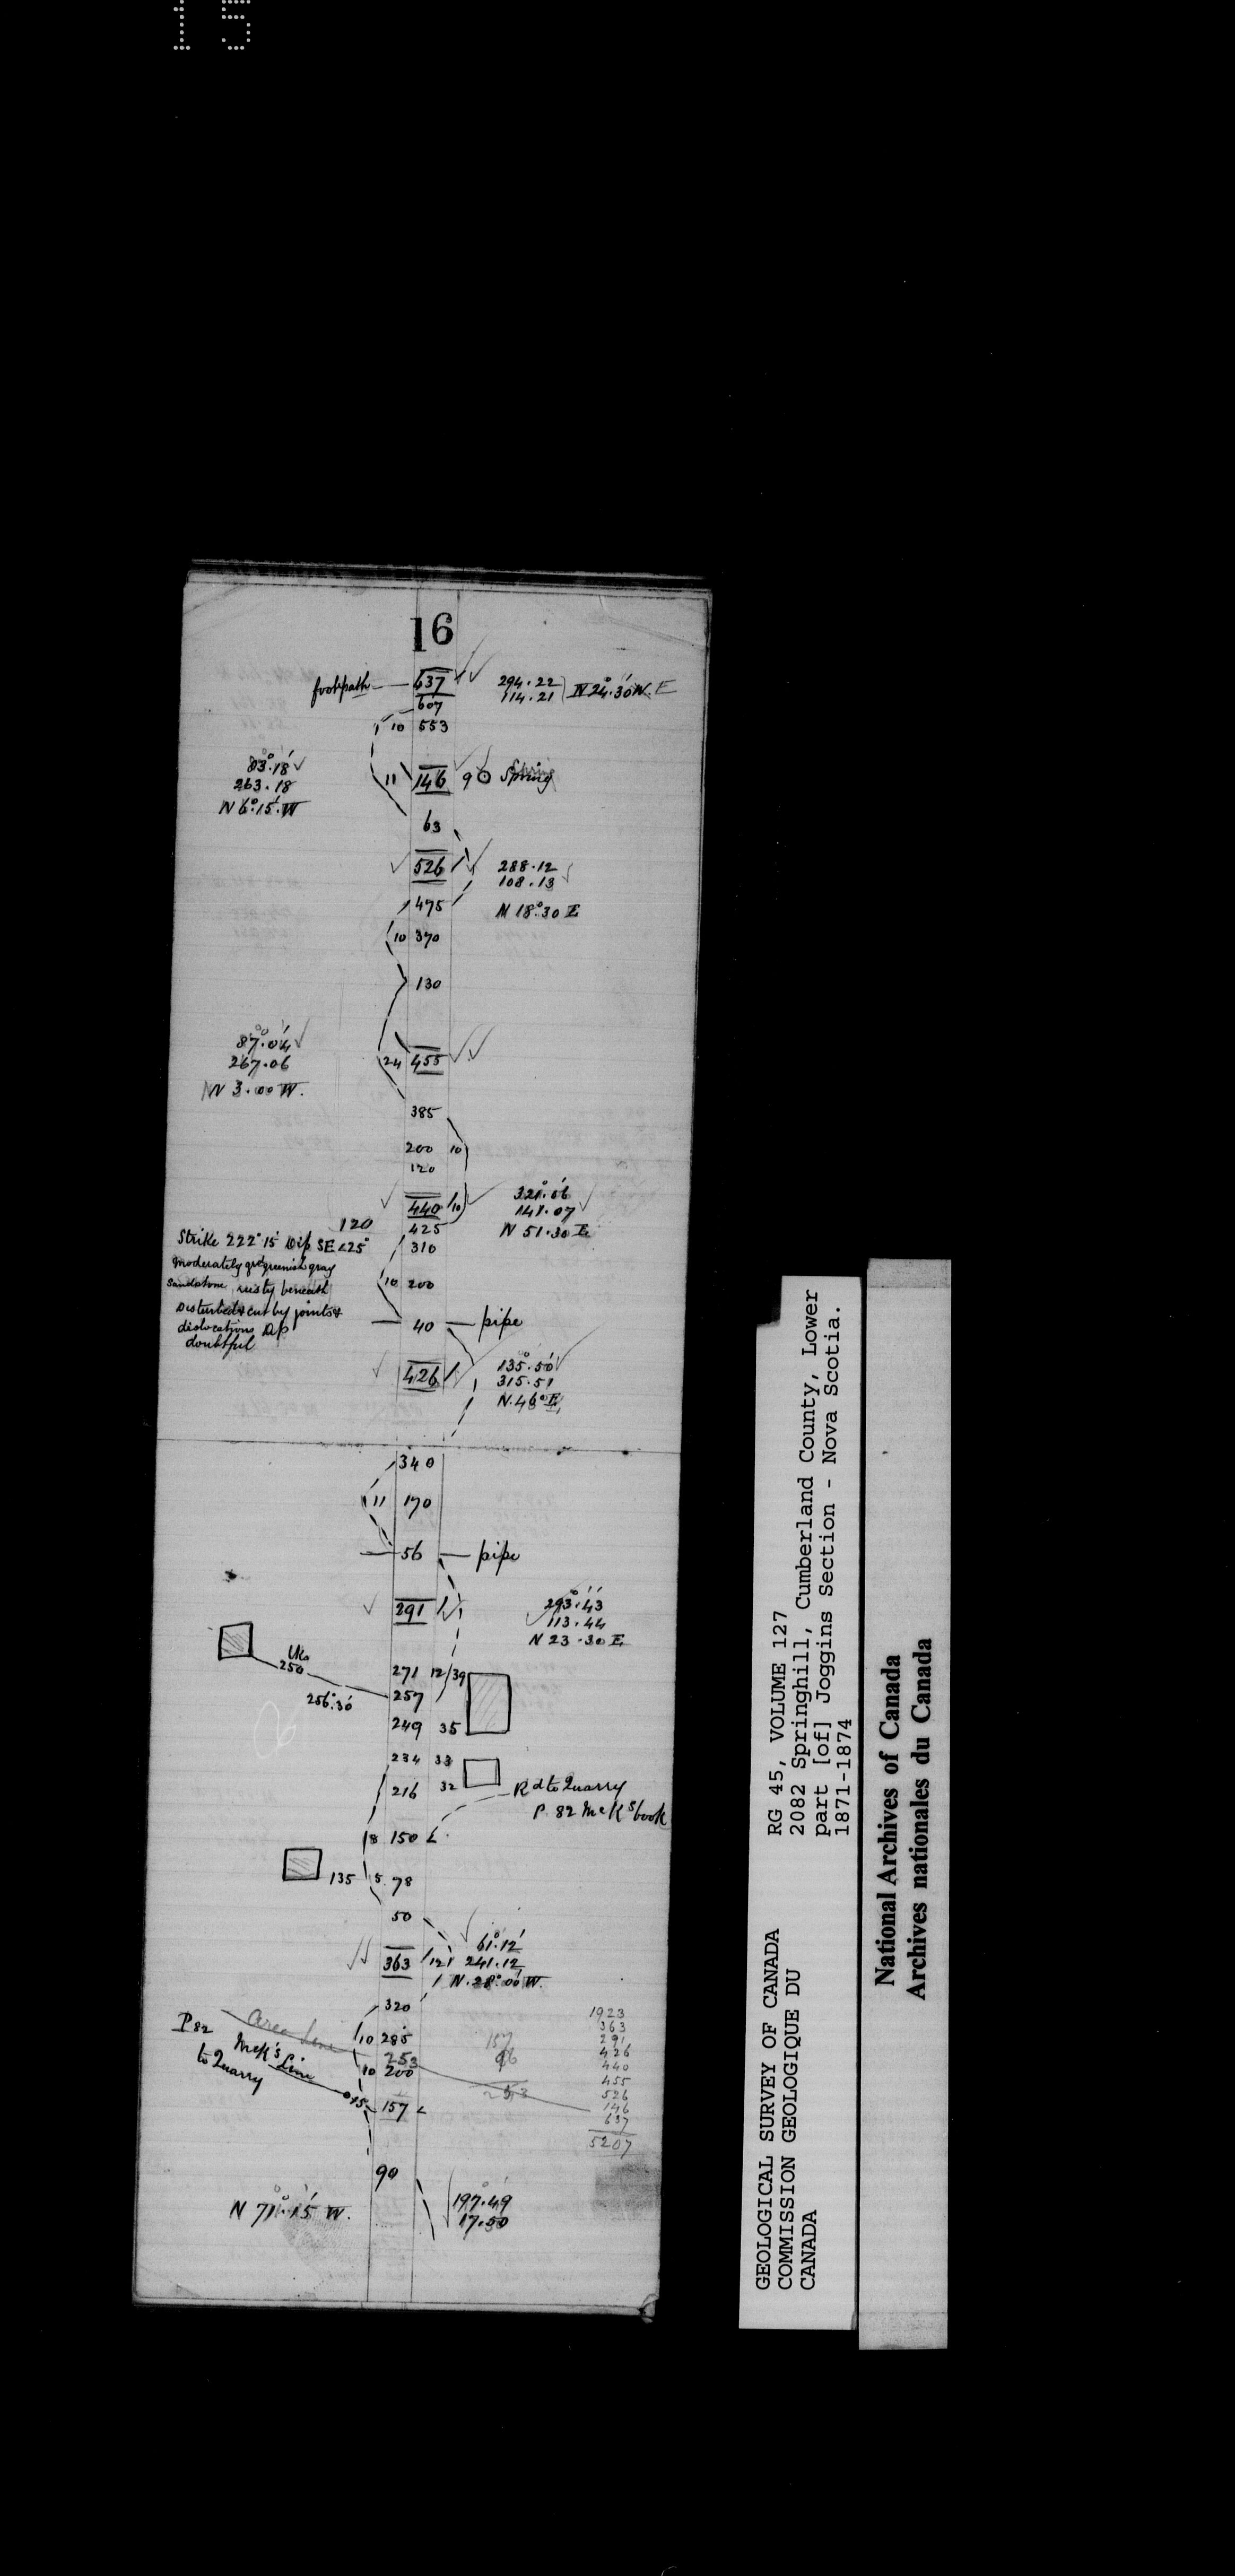 15
16
footpath — 637 294.22
607 114.21 N 24°.30' W. E
10 553
83°.18'
263.18
N 6°.15' W
11 146 9 Spring
63
526 288.12
108.13
475 N 18°.30 E
10 370
130
87°.04'
267.06
N 3.00 W.
24 455
385
200 10
120
440 10 321°.06'
141.07
425 N 51.30 E
120
Strike 222°15' Dip SE<25°
310
moderately greenish gray
Sandstone, rusty beneath
10 200
Disturbed & cut by joints &
dislocations Dip
doubtful
— 40 — pipe
426 135°.50'
315.51
N.46° E,
340
11 170
— 56 — pipe
291 293°.43'
113.44
N 23.30 E
250
256°.30'
271 12 39
257
249 35
234 33
216 32
Rd to Quarry
P. 82 McK's book
8 150
135 5 78
50
363 12 61°.12'
241.12
N.28°.00' W.
320
Area Line
P 82
McK's Line
to Quarry
10 285
253
10 200
15 157
157
96
253
1923
363
291
426
440
455
526
146
637
5207
90
N 71°.15' W.
197°.49'
17.50
GEOLOGICAL SURVEY OF CANADA
COMMISSION GEOLOGIQUE DU
CANADA
RG 45, VOLUME 127
2082 Springhill, Cumberland County, Lower
part [of] Joggins Section - Nova Scotia.
1871-1874
National Archives of Canada
Archives nationales du Canada